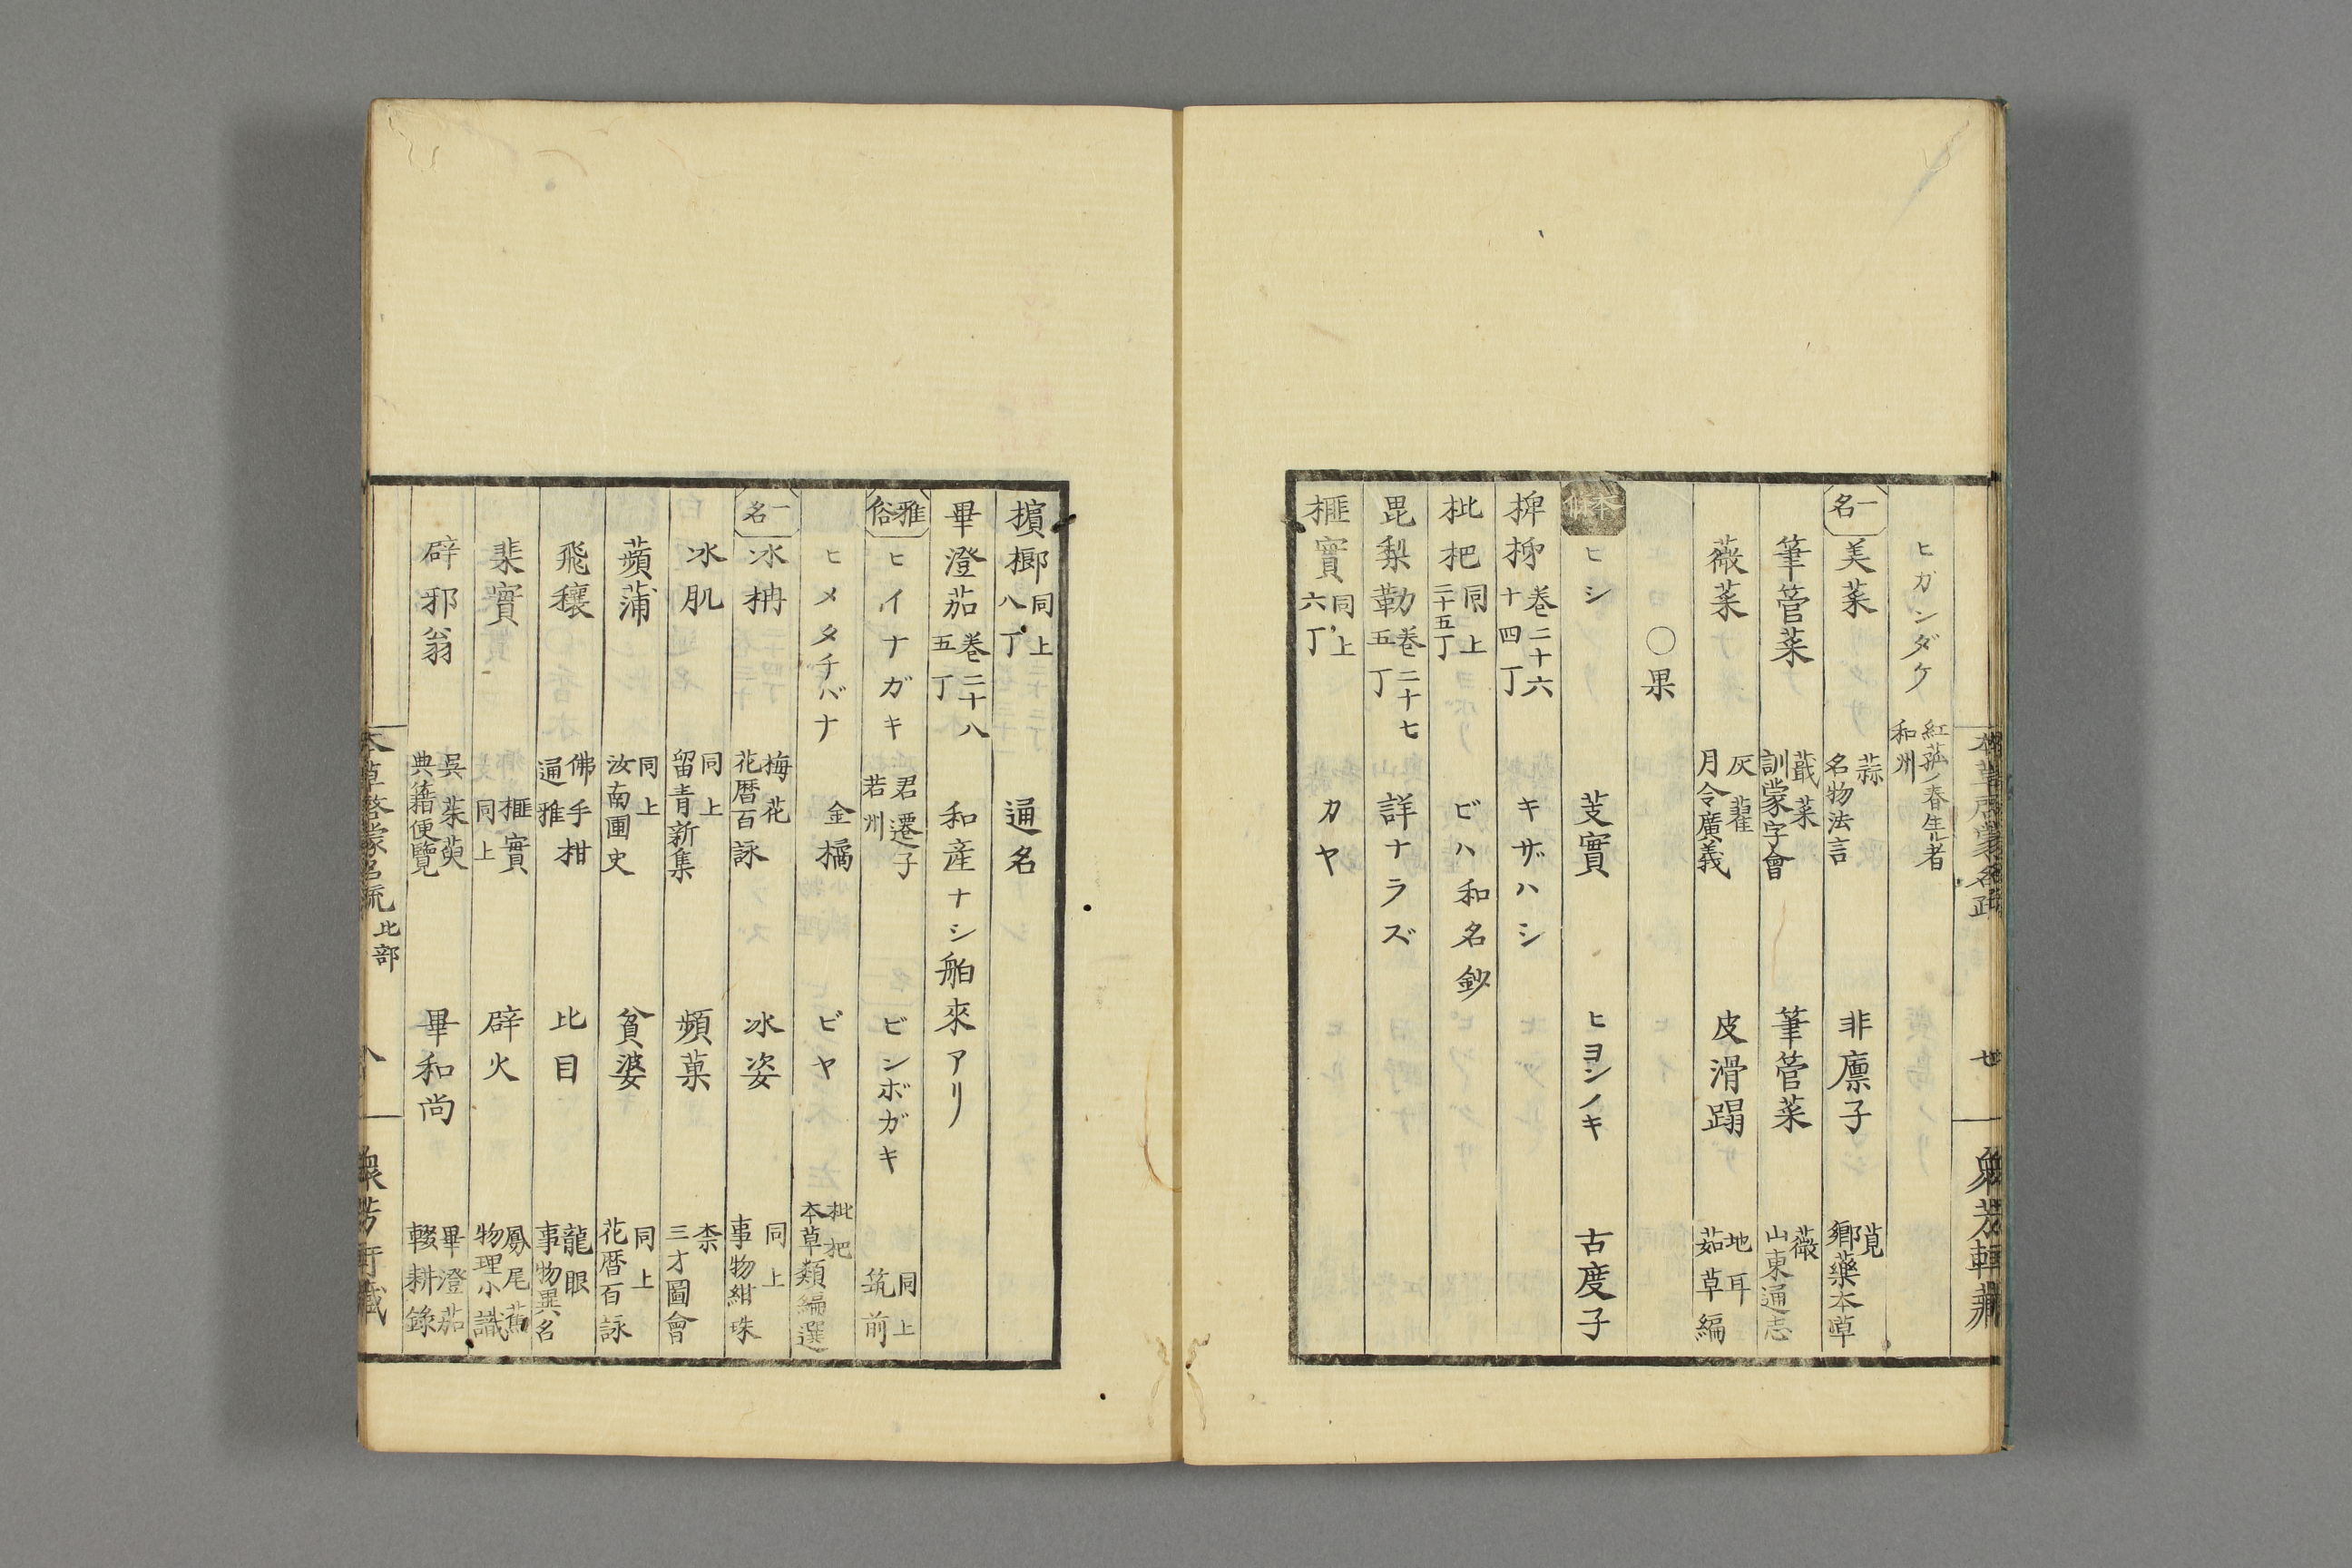 ヒガンダケ 紅菰ノ春生ル者 和州
一名 美菜 蒜 名物法言 非廩子 莧 鄉藥本草
筆管菜 蕺菜 訓蒙字會 筆管菜 薇 山東通志
薇菜 灰藋 月令廣義 皮滑蹋 地耳 茹草編
〇果
ヒシ 芰實 ヒヨンノキ 古度子
椑柹 巻二十六 十四丁 キザハシ
枇杷 同上 二十五丁 ビハ和名鈔
毘梨勒 巻二十七 五丁 詳ナラズ
榧實 同上 六丁 カヤ
本草啓蒙名疏 廿 衆芳軒藏
檳榔 同上 八丁 通名
畢澄茄 巻二十八 五丁 和産ナシ舶來アリ
雅俗 ヒイナガキ 君遷子 若州 ビンボガキ 同上 筑前
ヒメタチバナ 金橘 ビヤ 枇杷 本草類編選
一名 冰枏 梅花 花暦百詠 冰姿 同上 事物紺珠
冰肌 同上 留青新集 頻菓 柰 三才圖會
蘋蒲 同上 汝南圃史 貧婆 同上 花暦百詠
飛穰 佛手柑 通雅 比目 龍眼 事物異名
棐實 榧實 同上 辟火 鳳尾蕉 物理小識
辟邪翁 吳茱萸 典籍便覽 畢和尚 畢澄茄 輟耕錄
本草啓蒙名疏 比部 衆芳軒藏